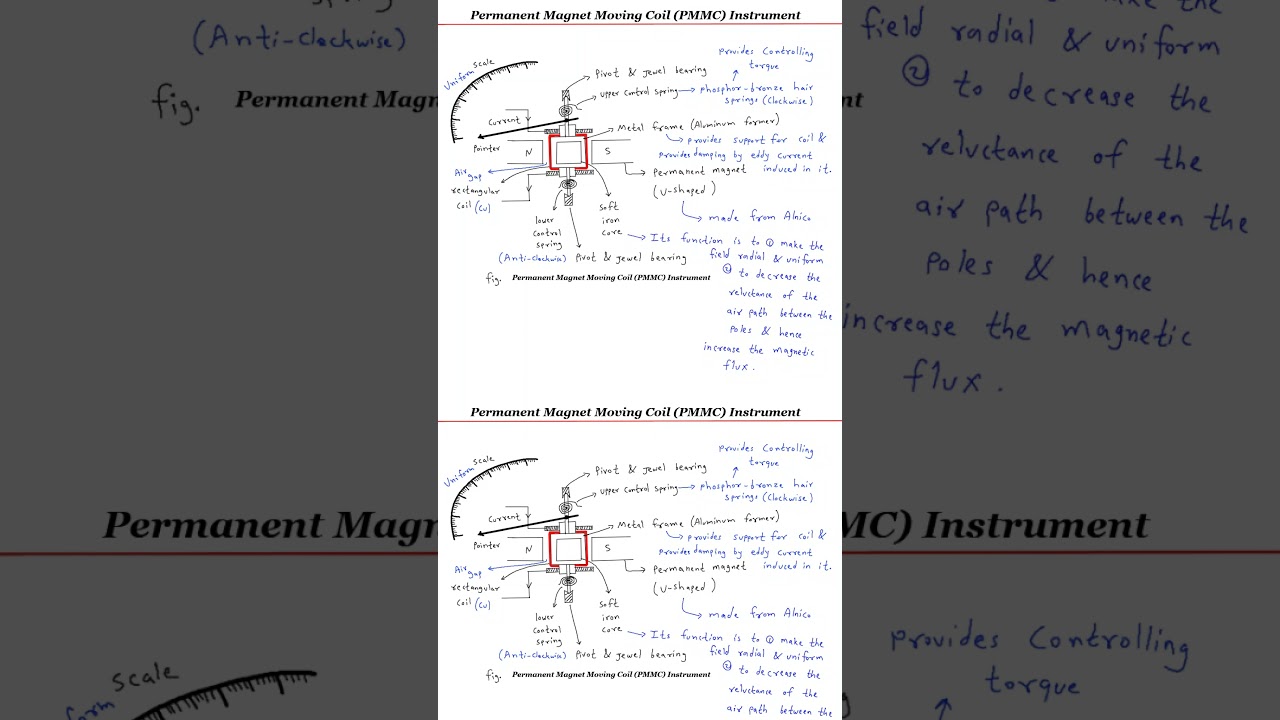 Permanent Magnet Moving Coil (PMMC) Instrument
provides controlling
torque
Uniform scale
Pivot & jewel bearing
upper control spring → phosphor-bronze hair
springs (clockwise)
Current
Metal frame (Aluminum former)
provides support for coil &
provides damping by eddy current
induced in it.
Pointer
N
S
Air gap
permanent magnet
(U-shaped)
rectangular
coil (Cu)
made from Alnico
lower
control
spring
(Anti-clockwis)
soft
iron
core
Its function is to ① make the
field radial & uniform
② to decrease the
reluctance of the
air path between the
poles & hence
increase the magnetic
flux.
Pivot & jewel bearing
fig. Permanent Magnet Moving Coil (PMMC) Instrument
Permanent Magnet Moving Coil (PMMC) Instrument
provides controlling
torque
Uniform scale
Pivot & jewel bearing
upper control spring → phosphor-bronze hair
springs (clockwise)
Current
Metal frame (Aluminum former)
provides support for coil &
provides damping by eddy current
induced in it.
Pointer
N
S
Air gap
permanent magnet
(U-shaped)
rectangular
coil (Cu)
made from Alnico
lower
control
spring
(Anti-clockwis)
soft
iron
core
Its function is to ① make the
field radial & uniform
② to decrease the
reluctance of the
air path between the
Pivot & jewel bearing
fig. Permanent Magnet Moving Coil (PMMC) Instrument
(Anti-clockwise)
fig. Permanent Magn
Permanent Magn
scale
the
field radial & uniform
② to decrease the
reluctance of the
air path between the
poles & hence
increase the magnetic
flux.
MC) Instrument
provides controlling
torque